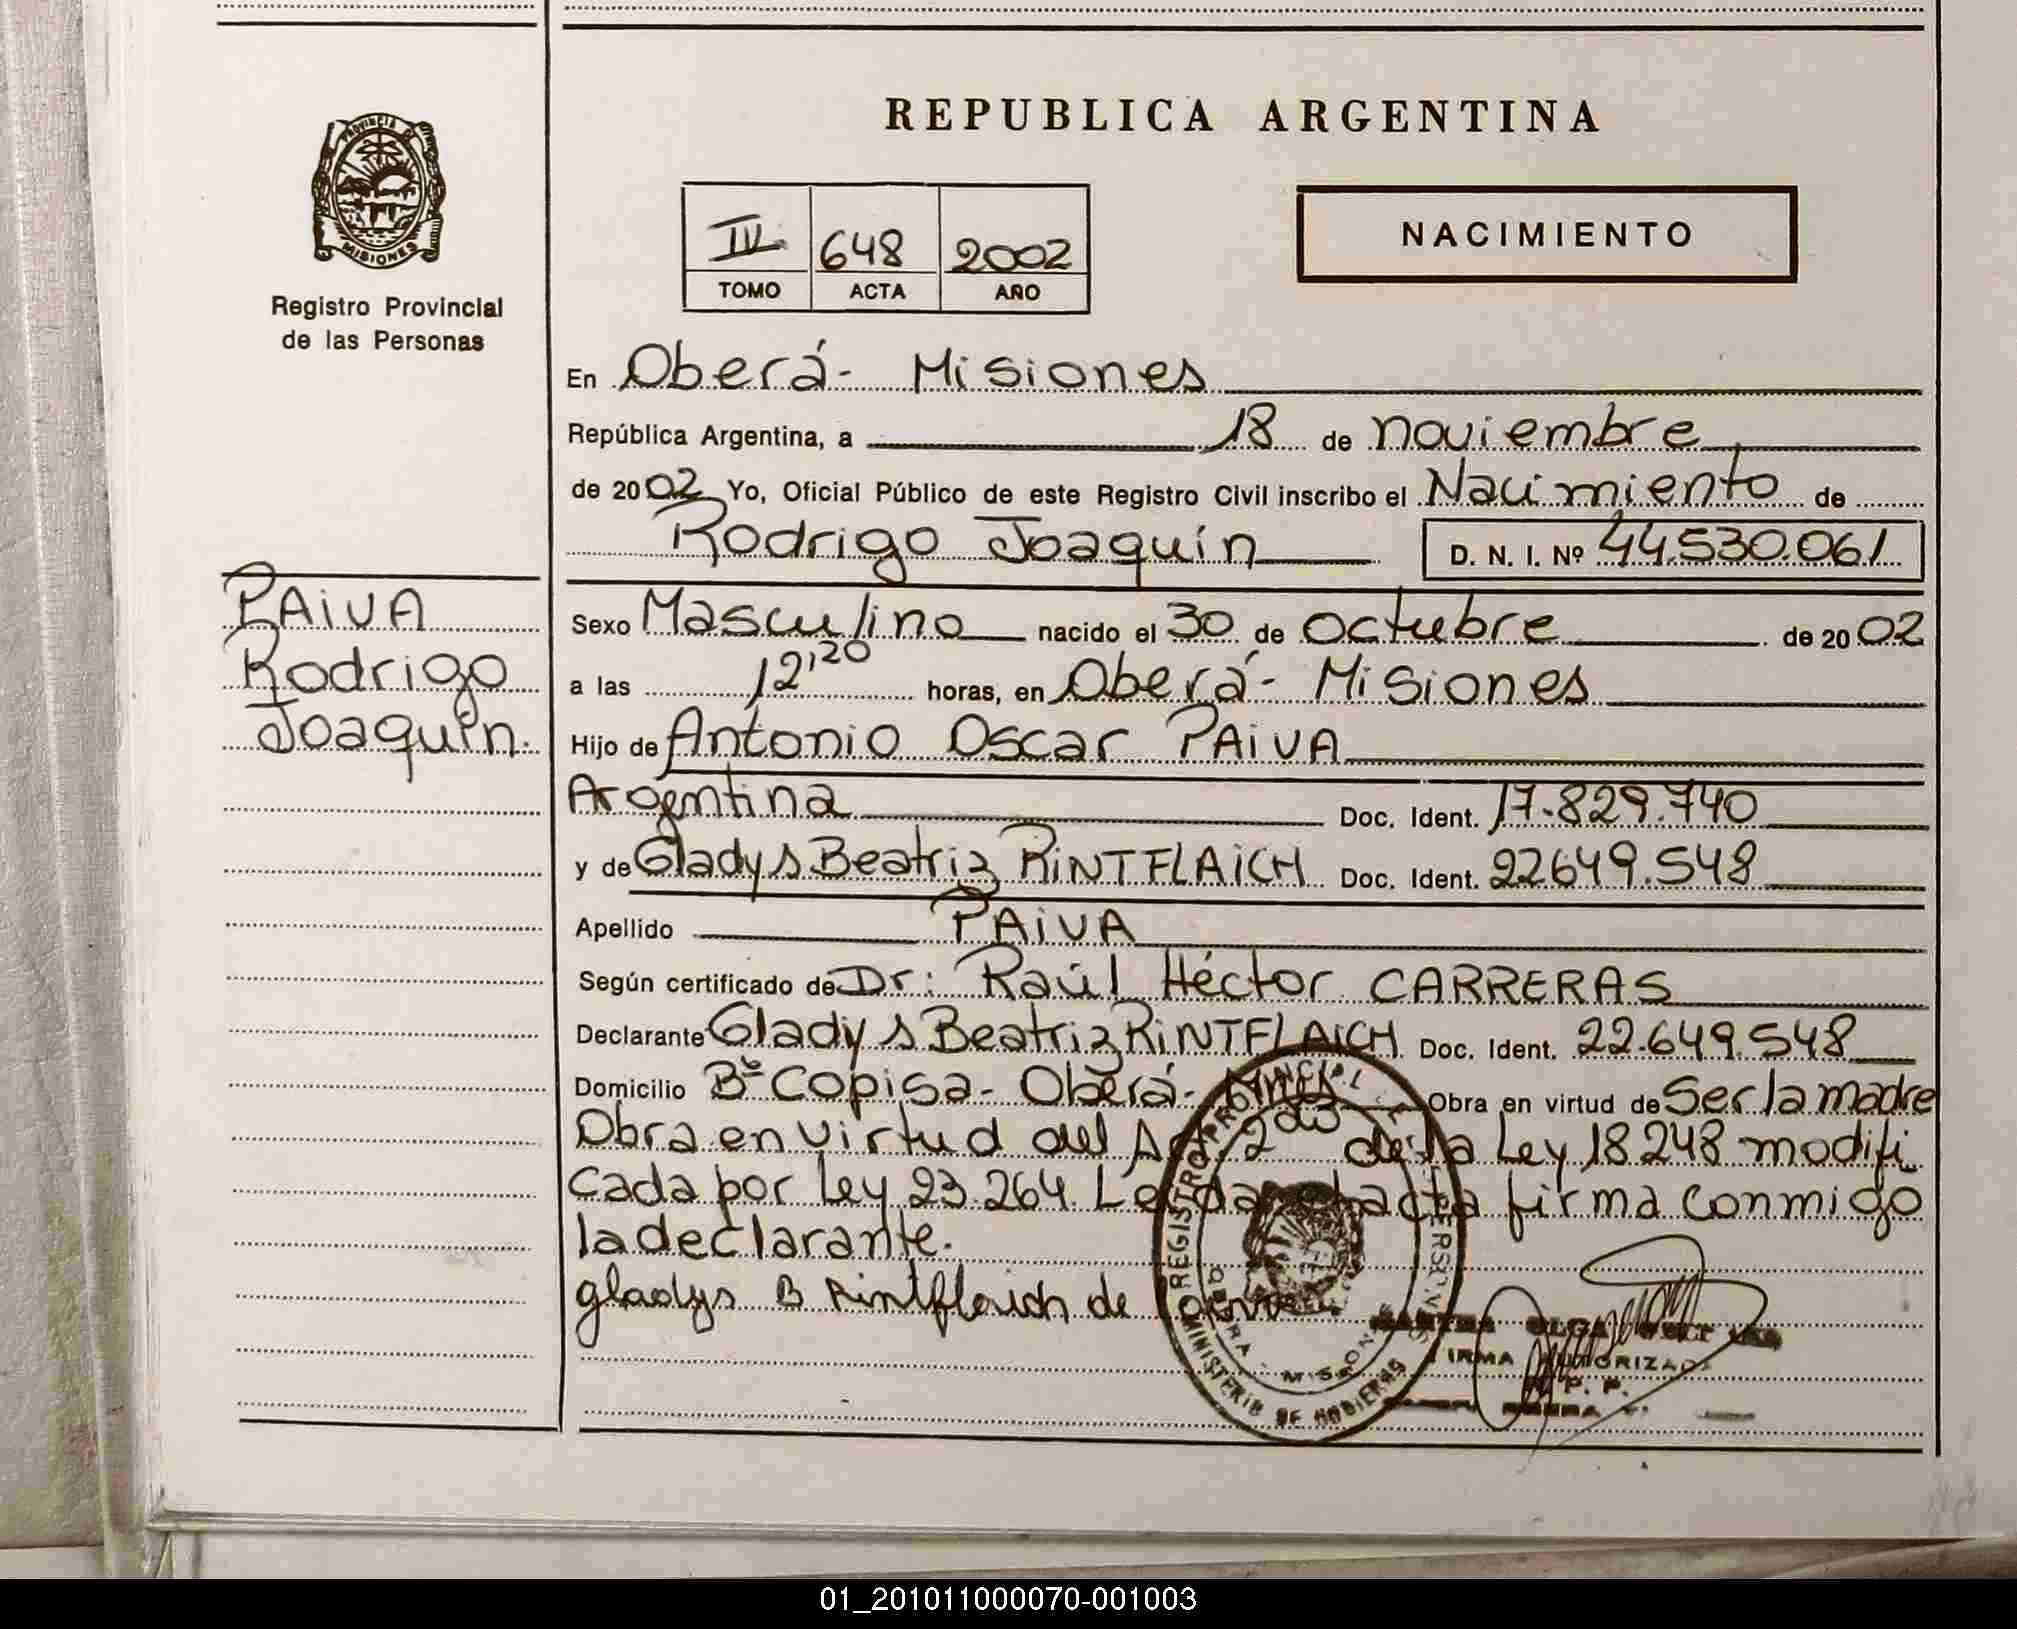 REPUBLICA ARGENTINA
PROVINCIA DE
MISIONES
Registro Provincial
de las Personas
IV 648 2002
TOMO ACTA AÑO
NACIMIENTO
En Oberá - Misiones
República Argentina, a 18 de noviembre
de 2002 Yo, Oficial Público de este Registro Civil inscribo el Nacimiento de
Rodrigo Joaquín D. N. I. Nº 44.530.061
PAIVA
Rodrigo
Joaquín.
Sexo Masculino nacido el 30 de octubre de 2002
a las 12,20 horas, en Oberá - Misiones
Hijo de Antonio Oscar PAIVA
Argentina Doc. Ident. 17.829.740
y de Gladys Beatriz RINTFLAICH Doc. Ident. 22649.548
Apellido PAIVA
Según certificado de Dr: Raúl Héctor CARRERAS
Declarante Gladys Beatriz RINTFLAICH Doc. Ident. 22.649.548
Domicilio Bº Copisa - Oberá - Mnes Obra en virtud de Ser la madre
Obra en virtud del Art 2do de la Ley 18248 modifi
cada por Ley 23.264. Leída el acta firma conmigo
la declarante.
gladys B Rintflaich de
REGISTRO PROVINCIAL DE LAS PERSONAS
MINISTERIO DE GOBIERNO
OBERA - MISIONES
OLGA
FIRMA AUTORIZADA
R. P. P.
OBERA
01_201011000070-001003